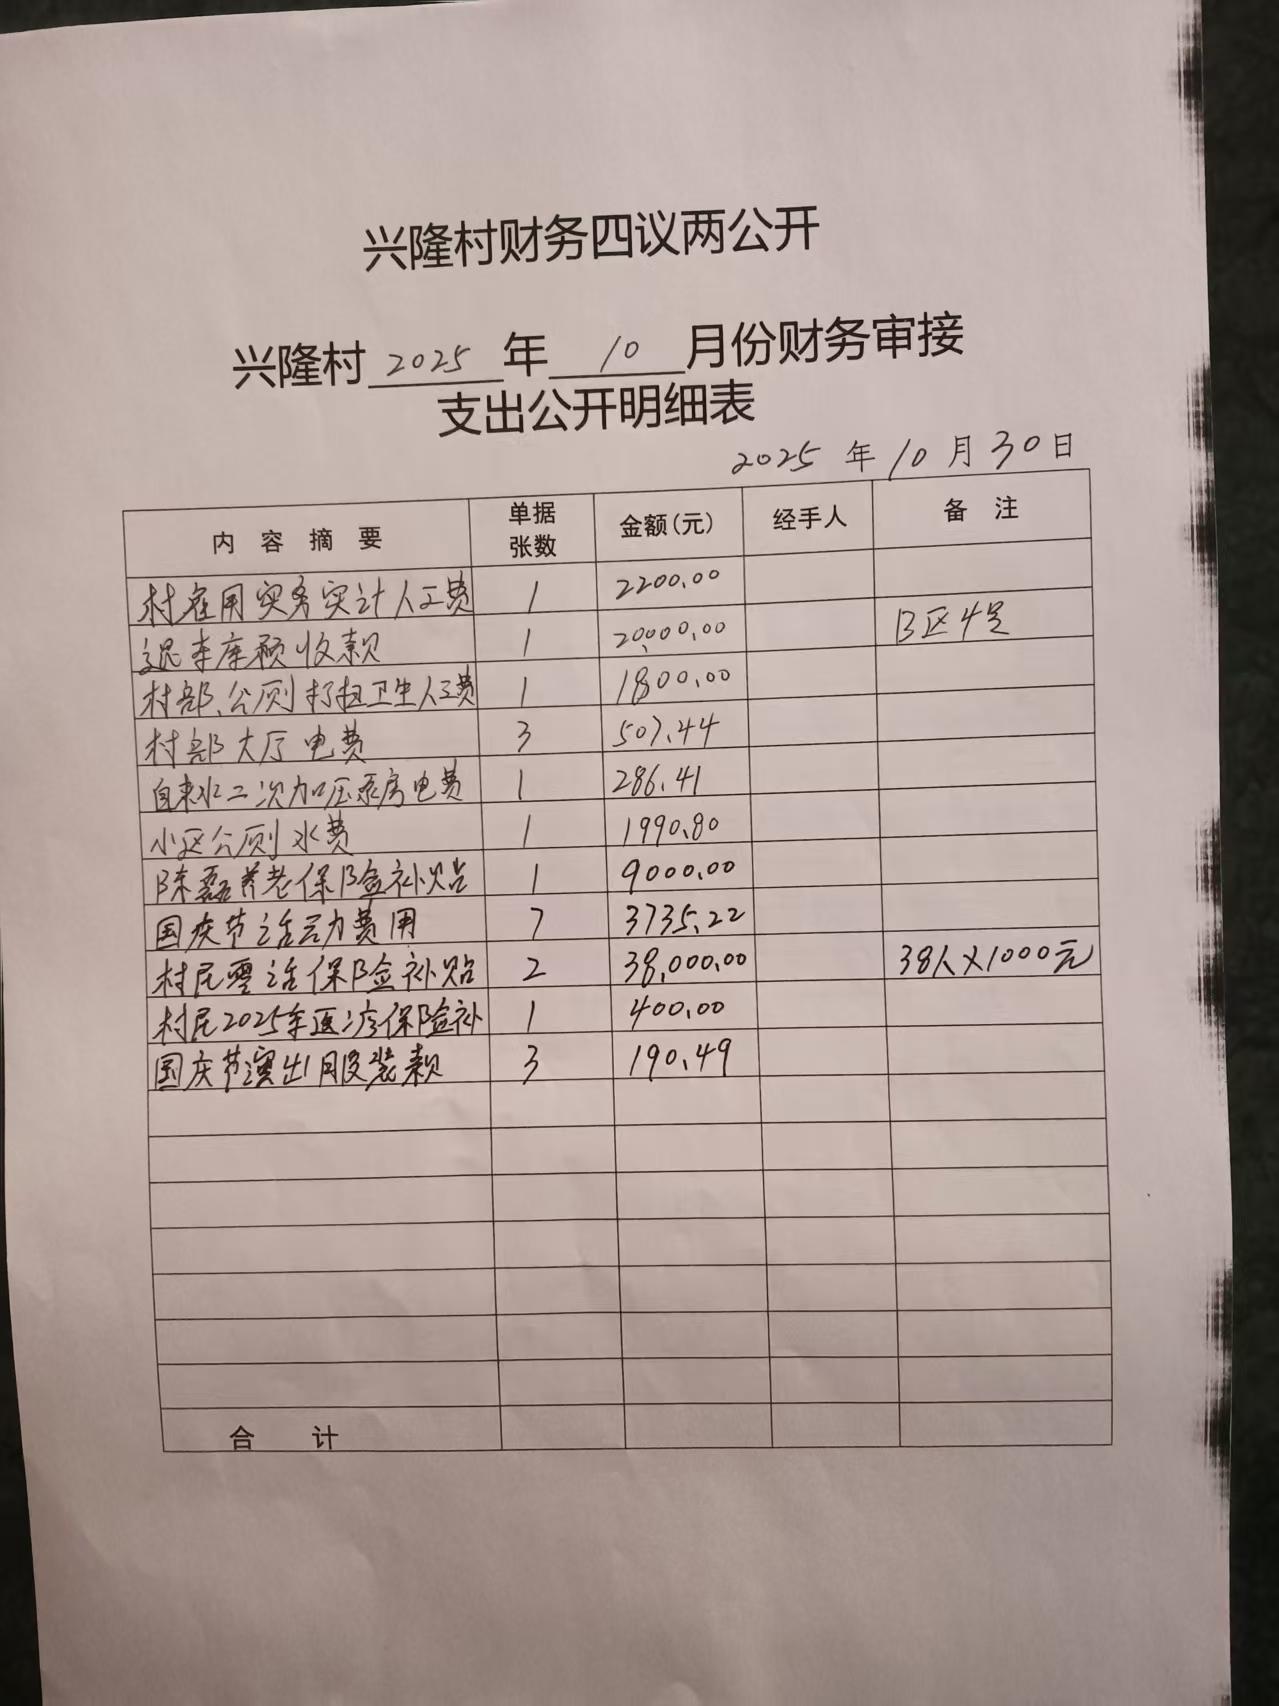 兴隆村财务四议两公开
兴隆村 2025 年 10 月份财务审接
支出公开明细表
2025 年 10 月 30 日
内 容 摘 要 单据张数 金额(元) 经手人 备 注
村雇用实务实计人工费 1 2200.00
退车库预收款 1 20,000.00 B区4号
村部、公厕打扫卫生人工费 1 1800.00
村部大厅电费 3 507.44
自来水二次加压泵房电费 1 286.41
小区公厕水费 1 1990.80
陈磊养老保险补贴 1 9000.00
国庆节活动费用 7 3735.22
村民灵活保险补贴 2 38,000.00 38人×1000元
村民2025年医疗保险补 1 400.00
国庆节演出服装款 3 190.49
合 计